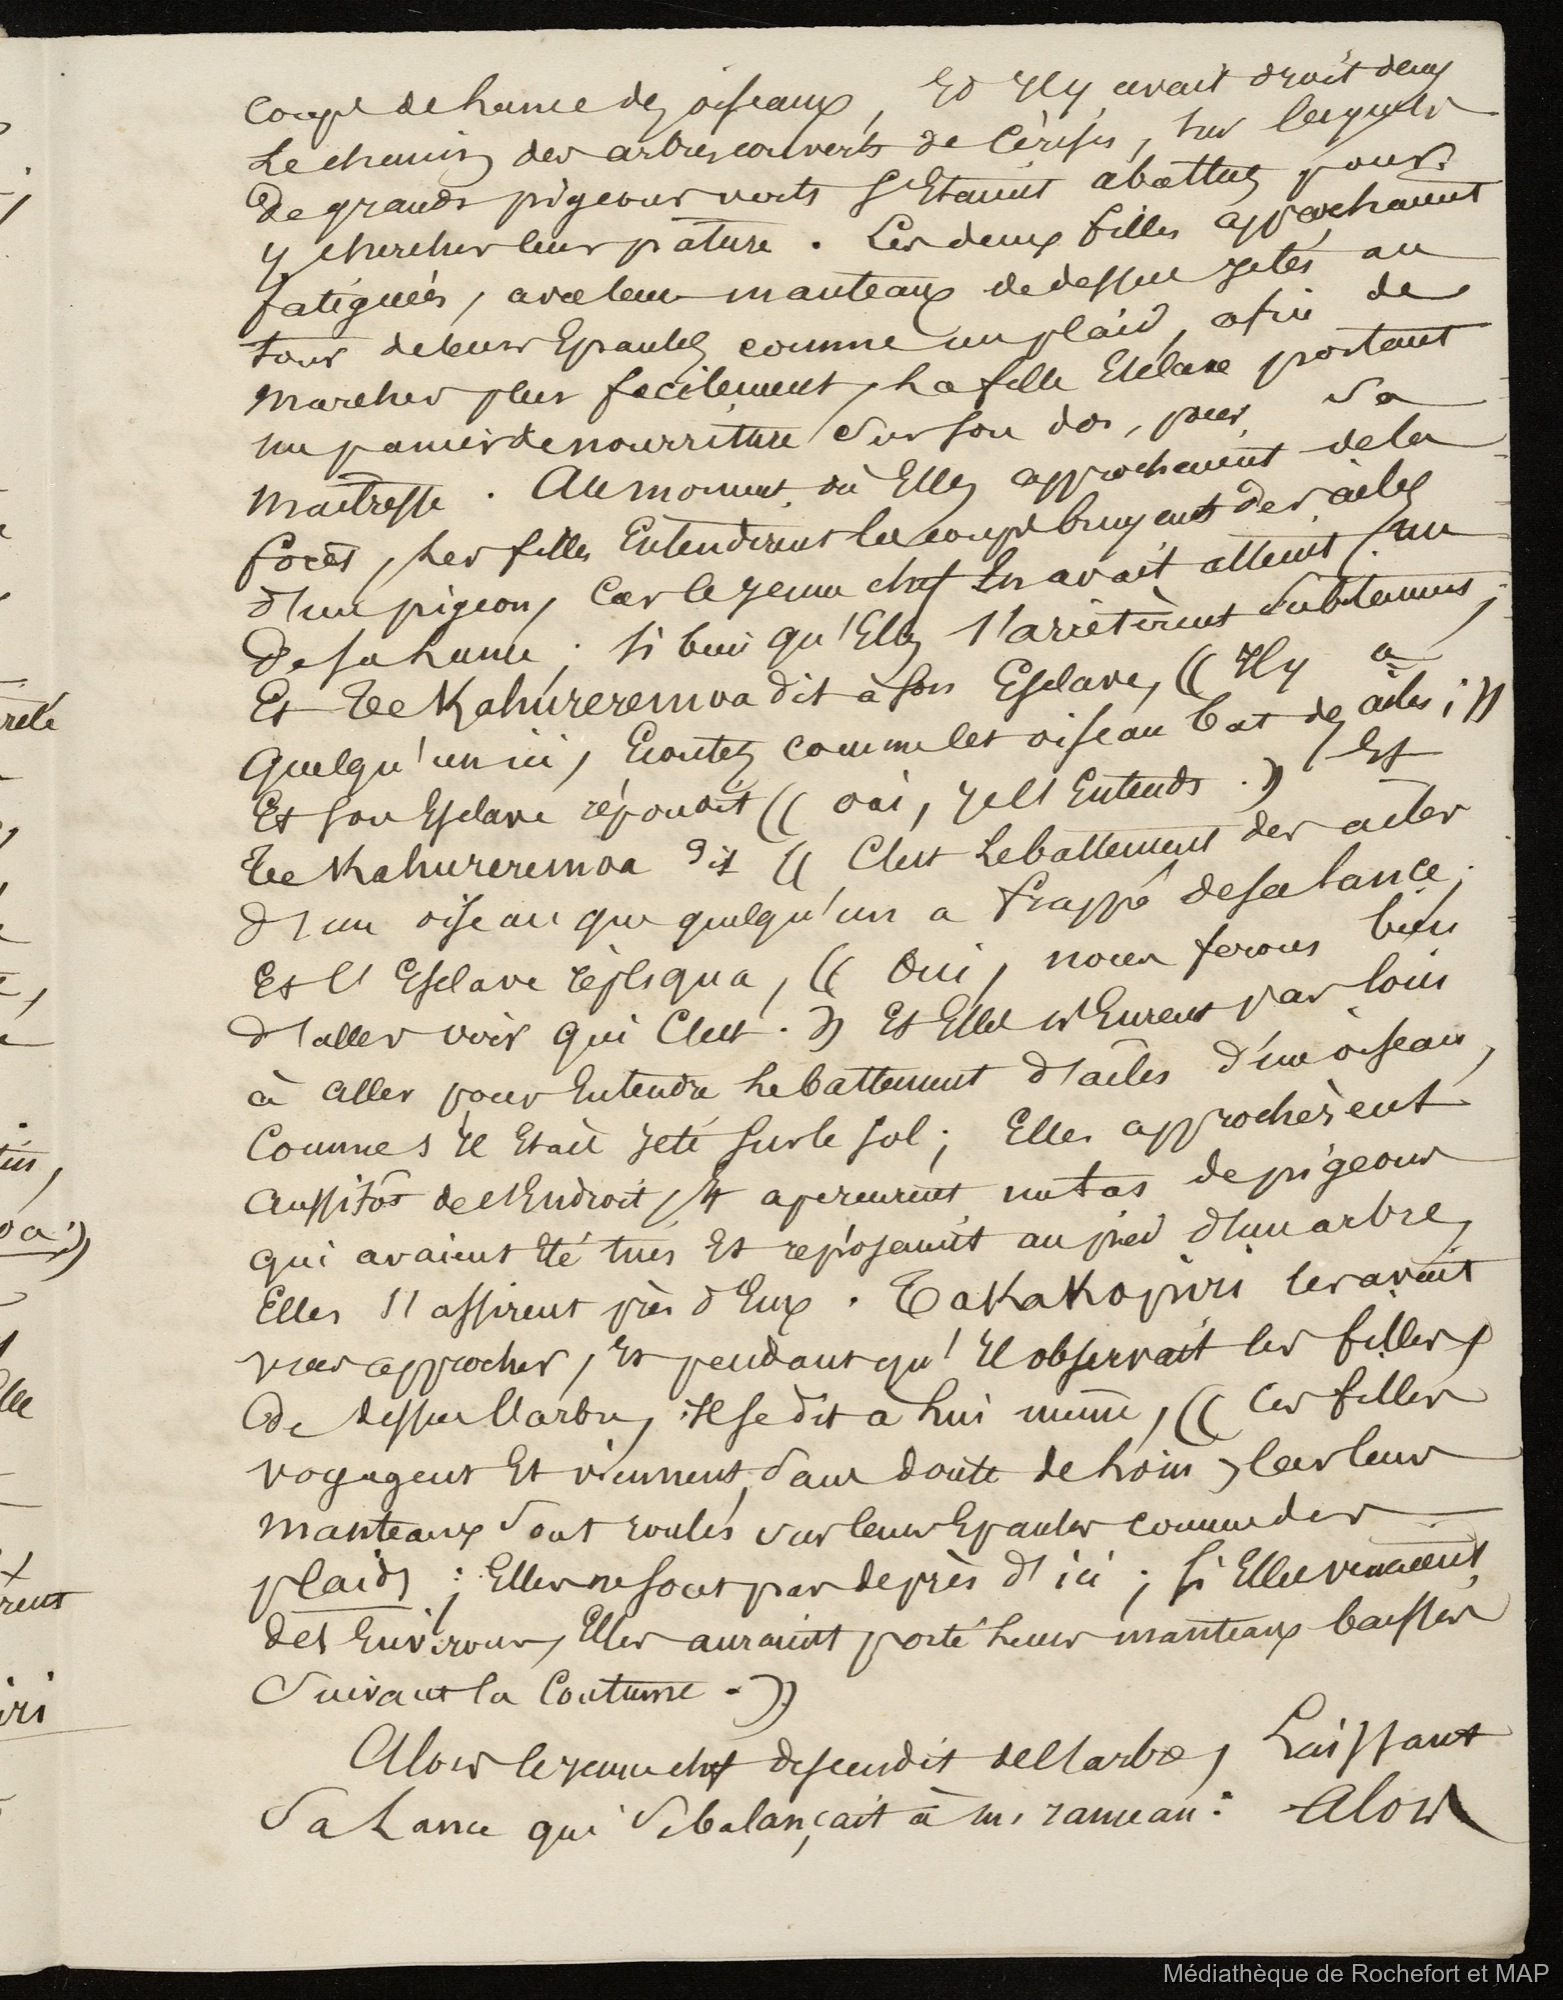 coups de lance des oiseaux, Et Il y avait droit dans
Le chemin des arbres couverts de Cérises, sur lesquels
De grands pigeons verts s'Etaient abattus pour
y chercher leur pâture. Les deux filles approchaient
fatiguées, avec leur manteaux de dessus jetés au
tour de leurs Epaules comme un plaid, afin de
Marcher plus facilement, La fille Esclave portant
un panier de nourriture sur son dos, pour sa
Maitresse. Au moment où Elles approchaient de la
forêt, Les filles Entendirent les coups bruyants des ailes
d'un pigeon, Car le jeune chef En avait atteint un
De sa Lance; si bien qu'Elles s'arrêtèrent subitement;
Et Te Kahureremoa dit à son Esclave, (( Il y a
Quelqu'un ici, Ecoutez comme cet oiseau bat des ailes; ))
Et son Esclave répondit (( oui, je l'Entends. )) Et
Te Kahureremoa dit (( C'est Le battement des ailes
d'un oiseau que quelqu'un a frappé de sa lance;
Et l'Esclave répliqua, (( Oui, nous ferons bien
d'aller voir qui C'est. )) Et Elles n'Eurent pas loin
à aller pour Entendre Le battement d'ailes d'un oiseau,
Comme s'Il Etait jeté sur le sol; Elles approchèrent
Aussitôt de l'Endroit, Et aperçurent un tas de pigeons
qui avaient Eté tués Et reposaient au pied d'un arbre,
Elles s'assirent près d'Eux. Takakopiri les avait
vues approcher, Et pendant qu'Il observait les filles,
De dessus l'arbre, Il se dit à Lui même, (( Ces filles
voyagent Et viennent sans doute de Loin, Car leurs
Manteaux sont roulés sur leurs Epaules comme des
plaids; Elles ne sont pas de près d'ici; si Elles venaient
des Environs, Elles auraient porté Leurs manteaux baissés
Suivant la Coutume. ))
Alors le jeune chef descendit de l'arbre, Laissant
Sa Lance qui se balançait à un rameau: Alors
Médiathèque de Rochefort et MAP